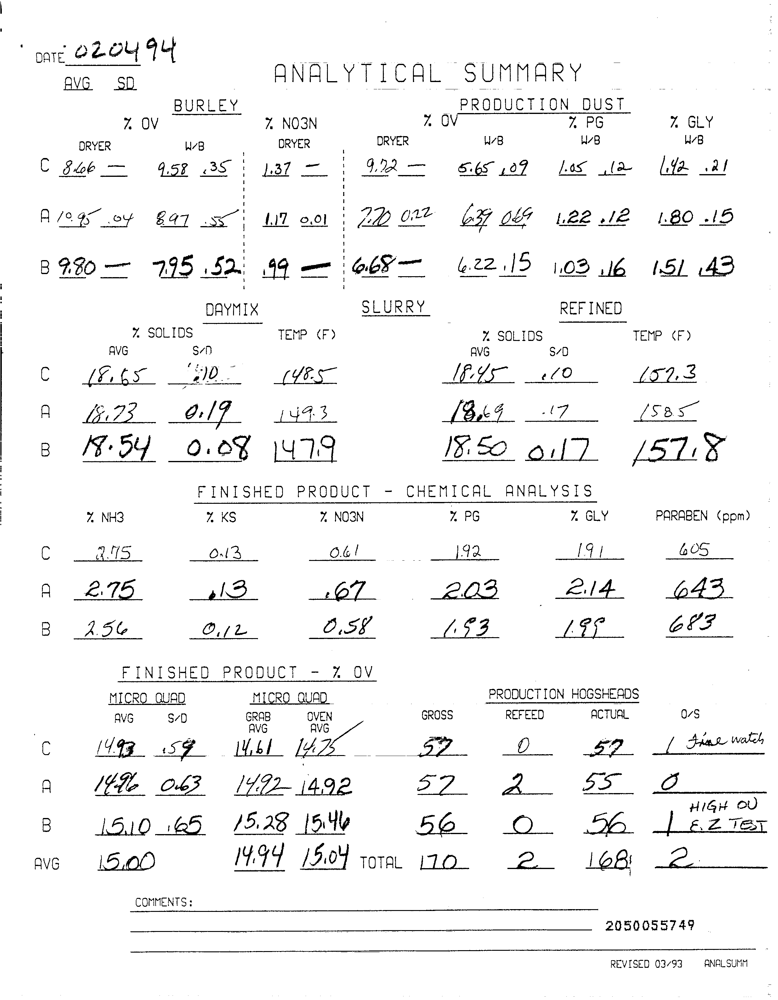 DATE 020494
ANALYTICAL SUMMARY
AVG SD
BURLEY PRODUCTION DUST
% OV % NO3N % OV % PG % GLY
DRYER W/B DRYER DRYER W/B W/B W/B
C 8.66 — 9.58 .35 1.37 — 9.72 — 5.65 .09 1.05 .12 1.42 .21
A 10.95 .04 8.97 .55 1.17 0.01 7.70 0.22 6.39 0.69 1.22 .12 1.80 .15
B 9.80 — 7.95 .52 .99 — 6.68 — 6.22 .15 1.03 .16 1.51 .43
DAYMIX SLURRY REFINED
% SOLIDS TEMP (F) % SOLIDS TEMP (F)
AVG S/D AVG S/D
C 18.65 .10 148.5 18.45 .10 157.3
A 18.73 0.19 149.3 18.69 .17 158.5
B 18.54 0.08 147.9 18.50 0.17 157.8
FINISHED PRODUCT - CHEMICAL ANALYSIS
% NH3 % KS % NO3N % PG % GLY PARABEN (ppm)
C 2.75 0.13 0.61 1.92 1.91 605
A 2.75 .13 .67 2.03 2.14 643
B 2.56 0.12 0.58 1.93 1.99 683
FINISHED PRODUCT - % OV
MICRO QUAD MICRO QUAD PRODUCTION HOGSHEADS
AVG S/D GRAB AVG OVEN AVG GROSS REFEED ACTUAL O/S
C 14.93 .59 14.61 14.75 57 0 57 1 watch
A 14.96 0.63 14.92 14.92 57 2 55 0
B 15.10 .65 15.28 15.46 56 0 56 1 HIGH OV E.Z TEST
AVG 15.00 14.94 15.04 TOTAL 170 2 168 2
COMMENTS:
2050055749
REVISED 03/93 ANALSUMM